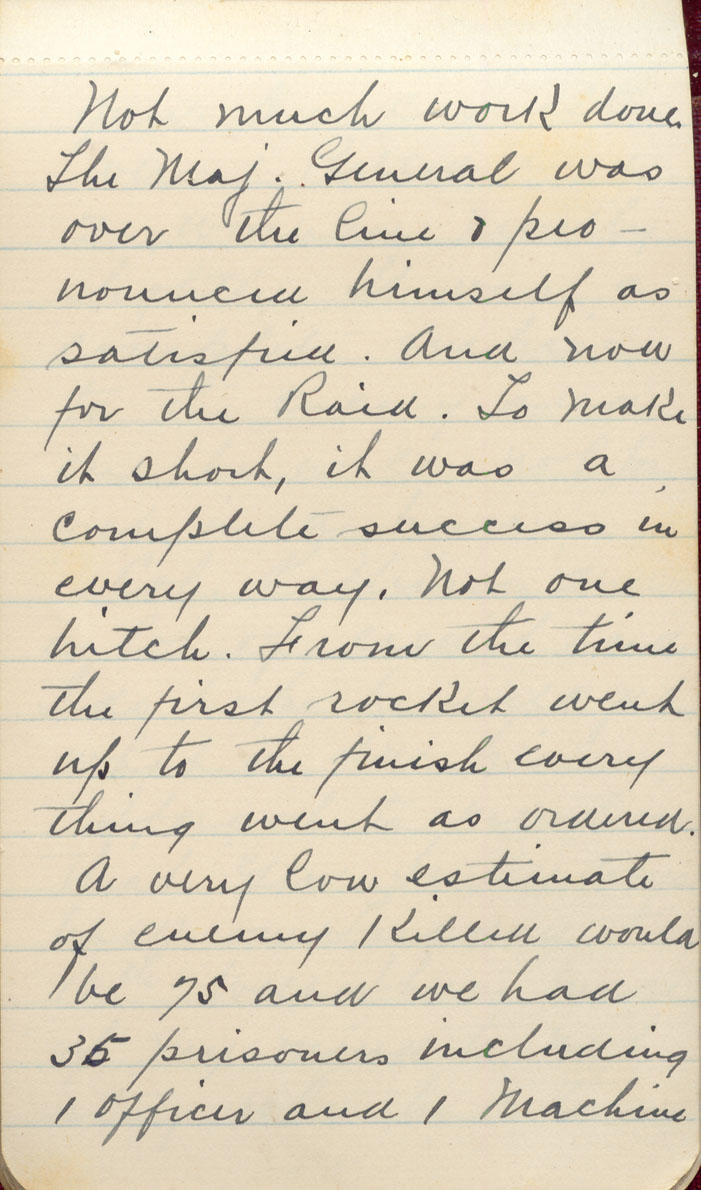 Not much work done.
The Maj. General was
over the line & pro-
nounced himself as
satisfied. And now
for the Raid. To make
it short, it was a
complete success in
every way. Not one
hitch. From the time
the first rocket went
up to the finish every
thing went as ordered.
A very low estimate
of enemy killed would
be 75 and we had
35 prisoners including
1 officer and 1 Machine